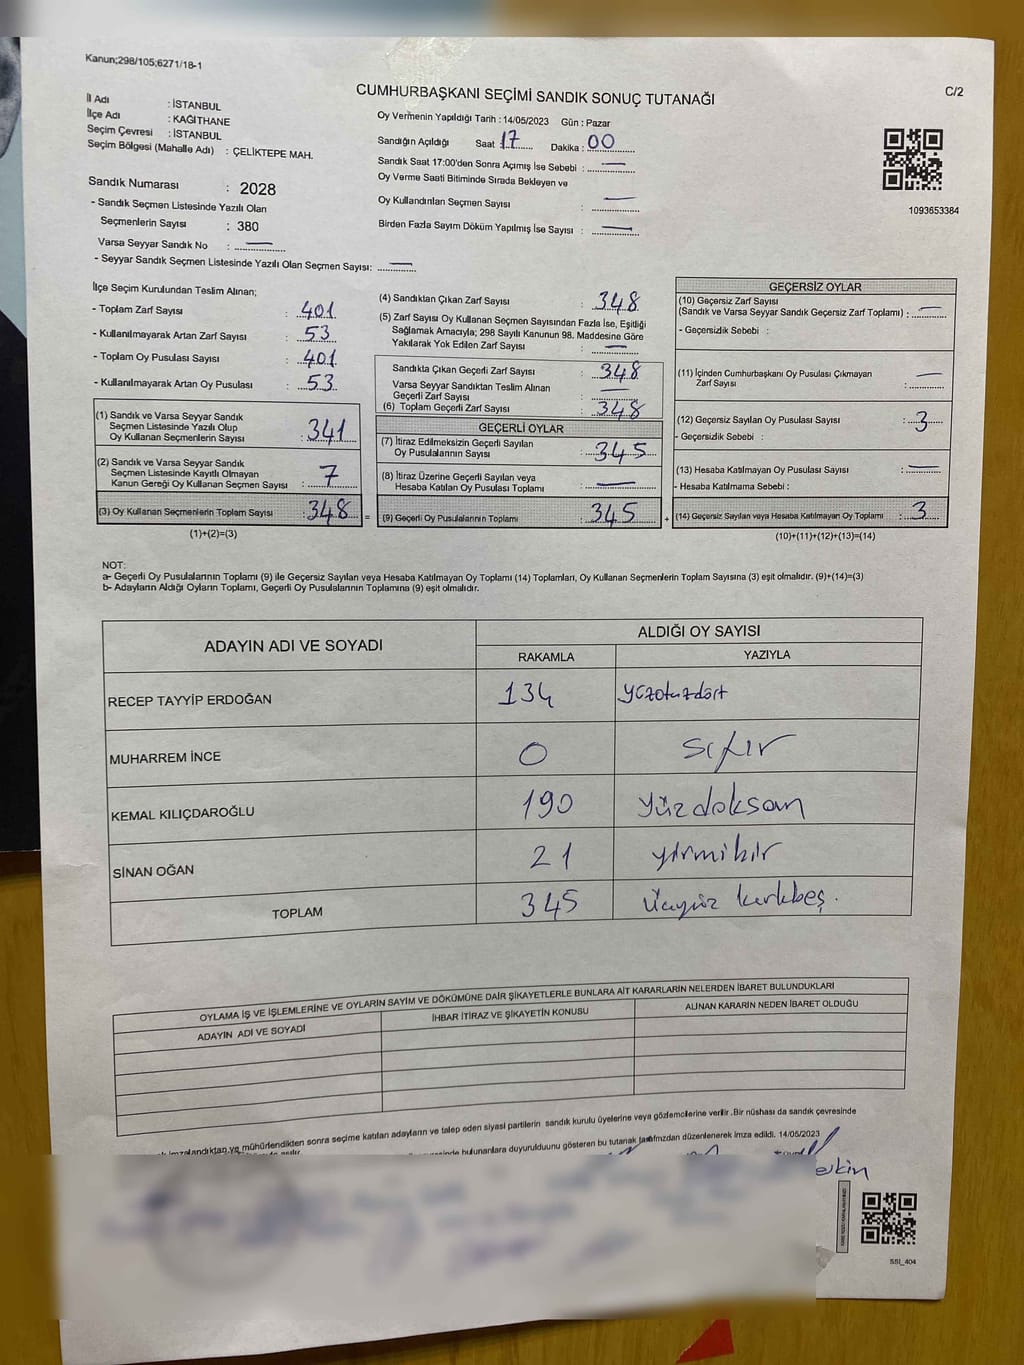 Kanun;298/105;6271/18-1
CUMHURBAŞKANI SEÇİMİ SANDIK SONUÇ TUTANAĞI
C/2
İl Adı : İSTANBUL
İlçe Adı : KAĞITHANE
Seçim Çevresi : İSTANBUL
Seçim Bölgesi (Mahalle Adı) : ÇELİKTEPE MAH.
Oy Vermenin Yapıldığı Tarih : 14/05/2023 Gün : Pazar
Sandığın Açıldığı Saat 17 Dakika : 00
Sandık Saat 17:00'den Sonra Açımış İse Sebebi : —
Oy Verme Saati Bitiminde Sırada Bekleyen ve
Oy Kullandırılan Seçmen Sayısı : —
Birden Fazla Sayım Döküm Yapılmış İse Sayısı : —
1093653384
Sandık Numarası : 2028
- Sandık Seçmen Listesinde Yazılı Olan
Seçmenlerin Sayısı : 380
Varsa Seyyar Sandık No : —
- Seyyar Sandık Seçmen Listesinde Yazılı Olan Seçmen Sayısı: —
İlçe Seçim Kurulundan Teslim Alınan;
- Toplam Zarf Sayısı : 401
- Kullanılmayarak Artan Zarf Sayısı : 53
- Toplam Oy Pusulası Sayısı : 401
- Kullanılmayarak Artan Oy Pusulası : 53
(1) Sandık ve Varsa Seyyar Sandık
Seçmen Listesinde Yazılı Olup
Oy Kullanan Seçmenlerin Sayısı : 341
(2) Sandık ve Varsa Seyyar Sandık
Seçmen Listesinde Kayıtlı Olmayan
Kanun Gereği Oy Kullanan Seçmen Sayısı : 7
(3) Oy Kullanan Seçmenlerin Toplam Sayısı : 348 =
(1)+(2)=(3)
(4) Sandıktan Çıkan Zarf Sayısı : 348
(5) Zarf Sayısı Oy Kullanan Seçmen Sayısından Fazla İse, Eşitliği
Sağlamak Amacıyla; 298 Sayılı Kanunun 98. Maddesine Göre
Yakılarak Yok Edilen Zarf Sayısı : —
Sandıkta Çıkan Geçerli Zarf Sayısı : 348
Varsa Seyyar Sandıktan Teslim Alınan
Geçerli Zarf Sayısı : —
(6) Toplam Geçerli Zarf Sayısı : 348
GEÇERLİ OYLAR
(7) İtiraz Edilmeksizin Geçerli Sayılan
Oy Pusulalarının Sayısı : 345
(8) İtiraz Üzerine Geçerli Sayılan veya
Hesaba Katılan Oy Pusulası Toplamı : —
(9) Geçerli Oy Pusulalarının Toplamı : 345 +
GEÇERSİZ OYLAR
(10) Geçersiz Zarf Sayısı
(Sandık ve Varsa Seyyar Sandık Geçersiz Zarf Toplamı) : —
- Geçersizlik Sebebi :
(11) İçinden Cumhurbaşkanı Oy Pusulası Çıkmayan
Zarf Sayısı : —
(12) Geçersiz Sayılan Oy Pusulası Sayısı : 3
- Geçersizlik Sebebi :
(13) Hesaba Katılmayan Oy Pusulası Sayısı : —
- Hesaba Katılmama Sebebi :
(14) Geçersiz Sayılan veya Hesaba Katılmayan Oy Toplamı : 3
(10)+(11)+(12)+(13)=(14)
NOT:
a- Geçerli Oy Pusulalarının Toplamı (9) ile Geçersiz Sayılan veya Hesaba Katılmayan Oy Toplamı (14) Toplamları, Oy Kullanan Seçmenlerin Toplam Sayısına (3) eşit olmalıdır. (9)+(14)=(3)
b- Adayların Aldığı Oyların Toplamı, Geçerli Oy Pusulalarının Toplamına (9) eşit olmalıdır.
ADAYIN ADI VE SOYADI ALDIĞI OY SAYISI
RAKAMLA YAZIYLA
RECEP TAYYİP ERDOĞAN 134 yüzotuzdört
MUHARREM İNCE 0 sıfır
KEMAL KILIÇDAROĞLU 190 yüzdoksan
SİNAN OĞAN 21 yirmibir
TOPLAM 345 üçyüz kırkbeş.
OYLAMA İŞ VE İŞLEMLERİNE VE OYLARIN SAYIM VE DÖKÜMÜNE DAİR ŞİKAYETLERLE BUNLARA AİT KARARLARIN NELERDEN İBARET BULUNDUKLARI
ADAYIN ADI VE SOYADI İHBAR İTİRAZ VE ŞİKAYETİN KONUSU ALINAN KARARIN NEDEN İBARET OLDUĞU
mühürlendikten sonra seçime katılan adayların ve talep eden siyasi partilerin sandık kurulu üyelerine veya gözlemcilerine verilir .Bir nüshası da sandık çevresinde
bulunanlara duyurulduunu gösteren bu tutanak tarafımızdan düzenlenerek imza edildi. 14/05/2023
SSI_404